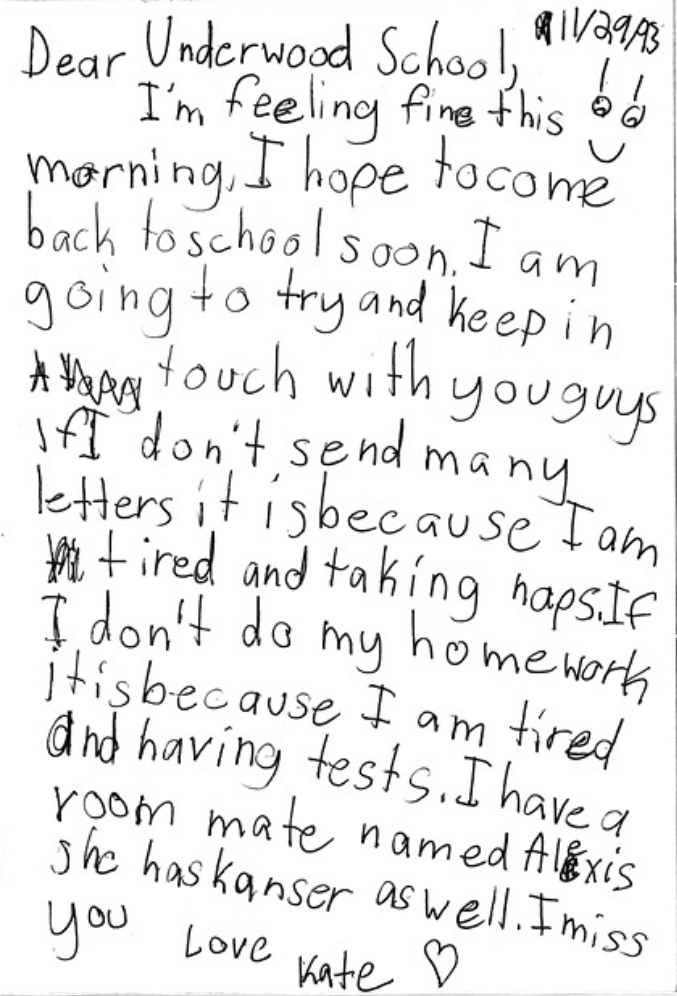 11/29/93
Dear Underwood School,
I'm feeling fine this
morning, I hope to come
back to school soon. I am
going to try and keep in
touch with you guys
If I don't send many
letters it is because I am
tired and taking naps. If
I don't do my homework
it is because I am tired
and having tests. I have a
room mate named Alexis
she has kanser as well. I miss
you
Love
Kate